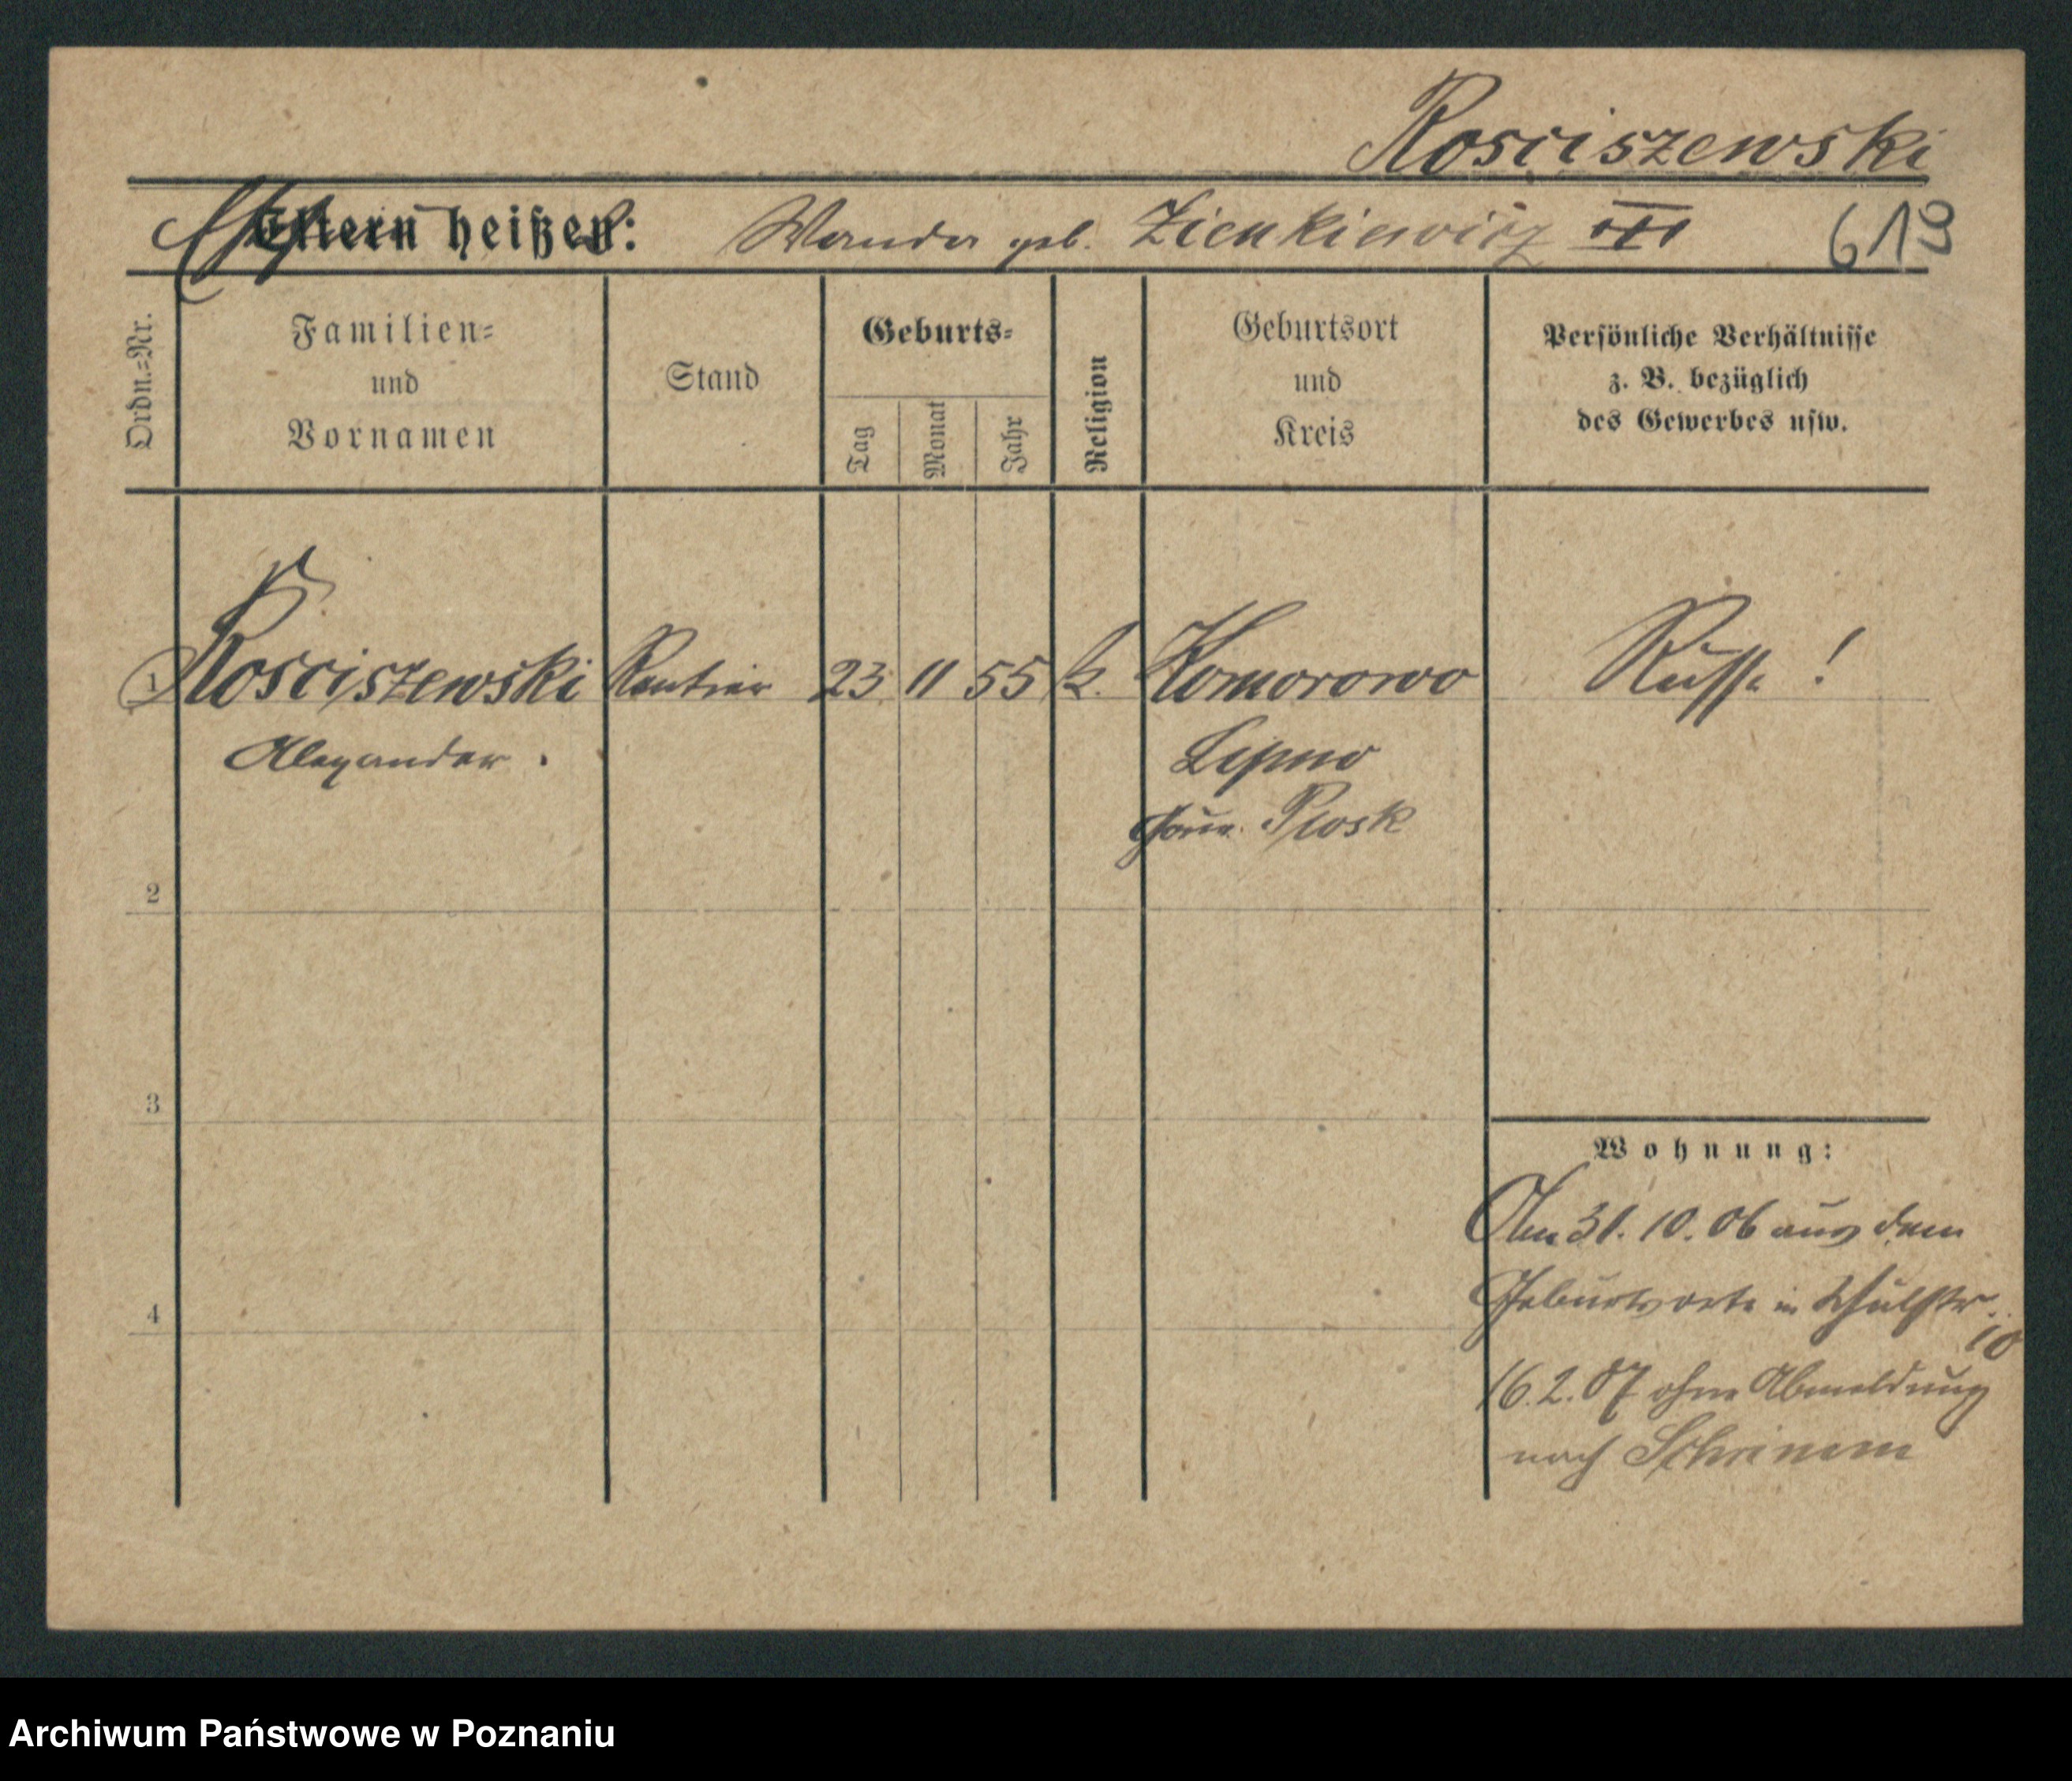 Rosciszewski
Eltern heißen: Wanda geb. Zienkiewicz III 619
Ordn.=Nr.
Familien=
und
Vornamen
Stand
Geburts=
Tag
Monat
Jahr
Religion
Geburtsort
und
Kreis
Persönliche Verhältnisse
z. B. bezüglich
des Gewerbes usw.
1 Rosciszewski Rentier 23 11 55 k. Komorowo Russe !
Alexander. Lipno
Gouv. Plosk
2
3
4
Wohnung:
Am 31. 10. 06 aus dem
Geburtsorte in
10
16. 2. 07 ohne Abmeldung
nach
Archiwum Państwowe w Poznaniu